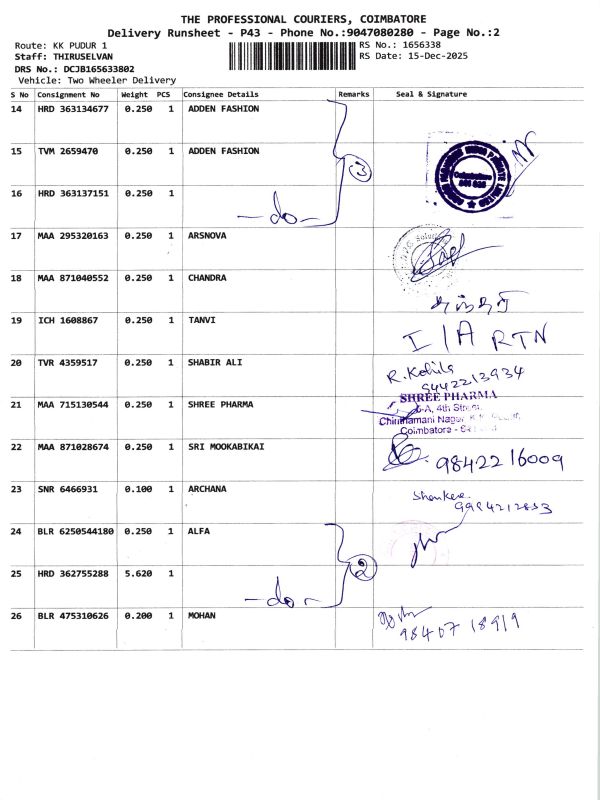 THE PROFESSIONAL COURIERS, COIMBATORE
Delivery Runsheet - P43 - Phone No.:9047080280 - Page No.:2
Route: KK PUDUR 1
RS No.: 1656338
Staff: THIRUSELVAN
RS Date: 15-Dec-2025
DRS No.: DCJB165633802
Vehicle: Two Wheeler Delivery
S No Consignment No Weight PCS Consignee Details Remarks Seal & Signature
14 HRD 363134677 0.250 1 ADDEN FASHION
15 TVM 2659470 0.250 1 ADDEN FASHION
3
Coimbatore
641 025
16 HRD 363137151 0.250 1 -do-
17 MAA 295320163 0.250 1 ARSNOVA
18 MAA 871040552 0.250 1 CHANDRA
19 ICH 1608867 0.250 1 TANVI I/A RTN
20 TVR 4359517 0.250 1 SHABIR ALI R. Kohila
9442213934
21 MAA 715130544 0.250 1 SHREE PHARMA SHREE PHARMA
4th Street,
Chinthamani Nagar,
Coimbatore -
22 MAA 871028674 0.250 1 SRI MOOKABIKAI 9842216009
23 SNR 6466931 0.100 1 ARCHANA
24 BLR 6250544180 0.250 1 ALFA
2
25 HRD 362755288 5.620 1 -do-
26 BLR 475310626 0.200 1 MOHAN 9840718919